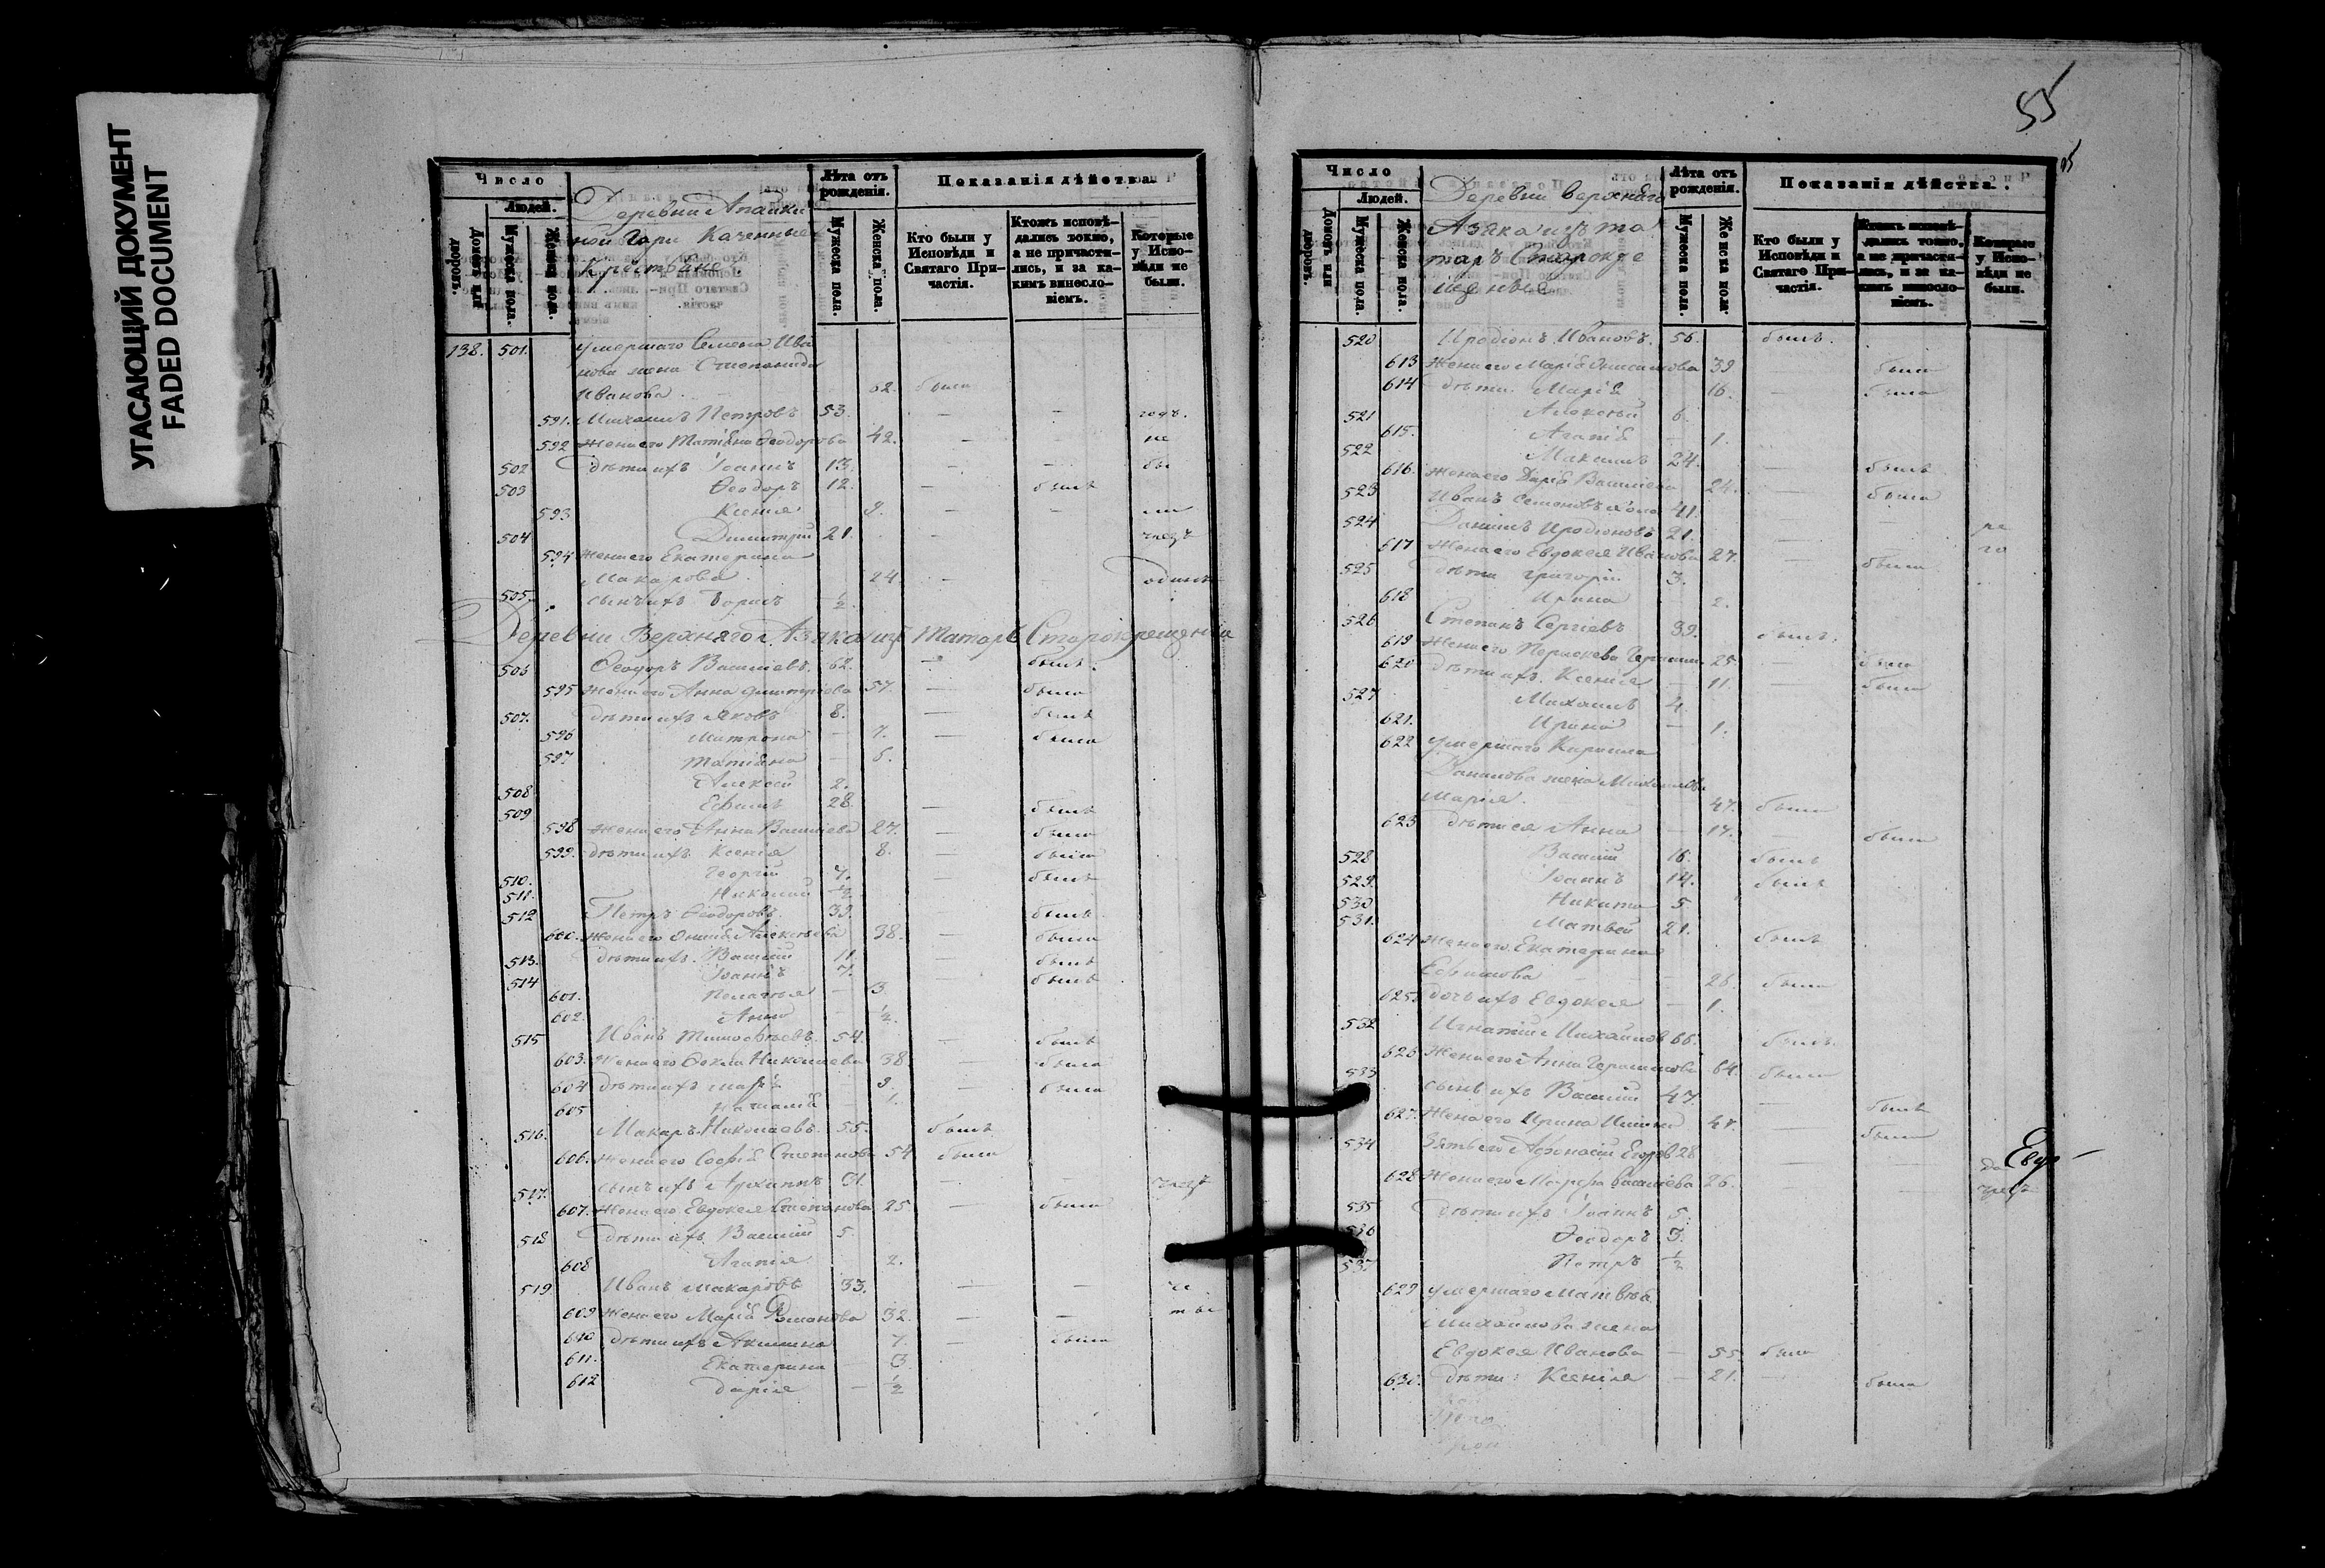 УГАСАЮЩИЙ ДОКУМЕНТ
FADED DOCUMENT
Число
Людей.
Домовъ или дворовъ.
Мужеска пола.
Женска пола.
Деревни Апайки
ной Гари
Крестьяне.
Лѣта отъ рожденія.
Мужеска пола.
Женска пола.
Показанія дѣйства.
Кто были у Исповѣди и Святаго Причастія.
Ктожъ исповѣдались токмо, а не причастились, и за какимъ винословіемъ.
Которые у Исповѣди не были.
138. 501. умершаго Семена Ива
нова жена Степанида
Иванова 62. была
591. Михаилъ Петровъ 53. — —
592 жена его Татіана Ѳеодорова 42. — не
502 дѣти ихъ Іоаннъ 13. — — бы
503 Ѳеодоръ 12. — былъ
593 Ксенія 9. — — ли
504 Димитрій 21. — чрезъ
594 жена его Екатерина
Макарова 24. — одинъ
505. сынъ ихъ Борисъ ½.
Деревни Верхняго Азяка изъ Татаръ Старокрещенныя
506 Ѳеодоръ Василіевъ. 62. — былъ.
595 жена его Анна Димитріева 57. — была
507. дѣти ихъ Яковъ 8. — былъ
596 Матрона — 7. — была
597 Татіана — 5.
508 Алексій 2.
509 Ефимъ 28. — былъ
598 жена его Анна Василіева 27. — была
599. дѣти ихъ Ксенія 8. — была
510. Георгій 7. — былъ
511. Николай ½
512 Петръ Ѳеодоровъ 39. былъ
600. жена его Алексѣева 38. — была
513. дѣти ихъ. Василій 11. — былъ
514 Іоаннъ 7. былъ
601. Пелагія — 3
602. Анна ½.
515 Иванъ Тимоѳѣевъ. 54. — былъ
603. жена его Ѳекла Николаева 38. — была
604 дѣти ихъ 9. — была
605 Наталія — 1.
516. Макаръ Николаевъ. 55. былъ
606. жена его Софія Степанова 54 была
517. сынъ ихъ Архиппъ 31. — — чрезъ
607. жена его Евдокея Степанова 25 — была
518 дѣти ихъ Василій 5.
608 Агапія 2.
519 Иванъ Макаровъ 33. — —
609 жена его Марія Романова 32. — —
610 дѣти ихъ Акилина 7. — была
611. Екатерина — 3
612 Дарія — ½
55
Число
Людей.
Домовъ или дворовъ.
Мужеска пола.
Женска пола.
Деревни Верхняго
Азяка изъ та
таръ Старокре
щеные
Лѣта отъ рожденія.
Мужеска пола.
Женска пола.
Показанія дѣйства.
Кто были у Исповѣди и Святаго Причастія.
Ктожъ исповѣдались токмо, а не причастились, и за какимъ винословіемъ.
Которые у Исповѣди не были.
520 Иродіонъ Ивановъ. 56. былъ.
613 Жена его Марія 39 — была
614 дѣти Марія 16. — была
521 Алексѣй 6.
615. Агапія — 1.
522 Максимъ 24. — былъ
616. жена его Дарія Василіева 24. — была
523 Иванъ Семеновъ 41. —
524 Даніилъ Иродіоновъ 21. —
617 Жена его Евдокея Иванова 27. — была
525 дѣти Григорій 3.
618 Ирина 2.
526 Степанъ Сергіевъ 39. былъ.
619 Жена его 25. — была
620 дѣти ихъ Ксенія — 11. — была
527 Михаилъ 4.
621. Ирина — 1.
622 умершаго Кирилла
Данилова жена Михайлова
Марія. 47. была
623 дѣти ея Анна — 17. — была
528 Василій 16. былъ
529. Іоаннъ 14. былъ
530 Никита 5
531. Матвей 21. былъ
624 Жена его Екатерина
Ефимова — 26. была
625. дочь ихъ Евдокея — 1.
532 Игнатій Михайловъ 66. былъ.
626 Жена его Анна Герасимова 64. была
533 сынъ ихъ Василій 47. — былъ
627. Жена его Ирина 47. — была
534 Зять его Афонасій Егоровъ 28 — —
Евдо-
628 Жена его Марфа Василіева 26. — — чрезъ
535 дѣти ихъ Іоаннъ 5.
536 Ѳеодоръ 3.
537 Петръ ½
629 умершаго Матвѣя
Михайлова жена
Евдокея Иванова — 55. была
630. дѣти: Ксенія — 21. — была